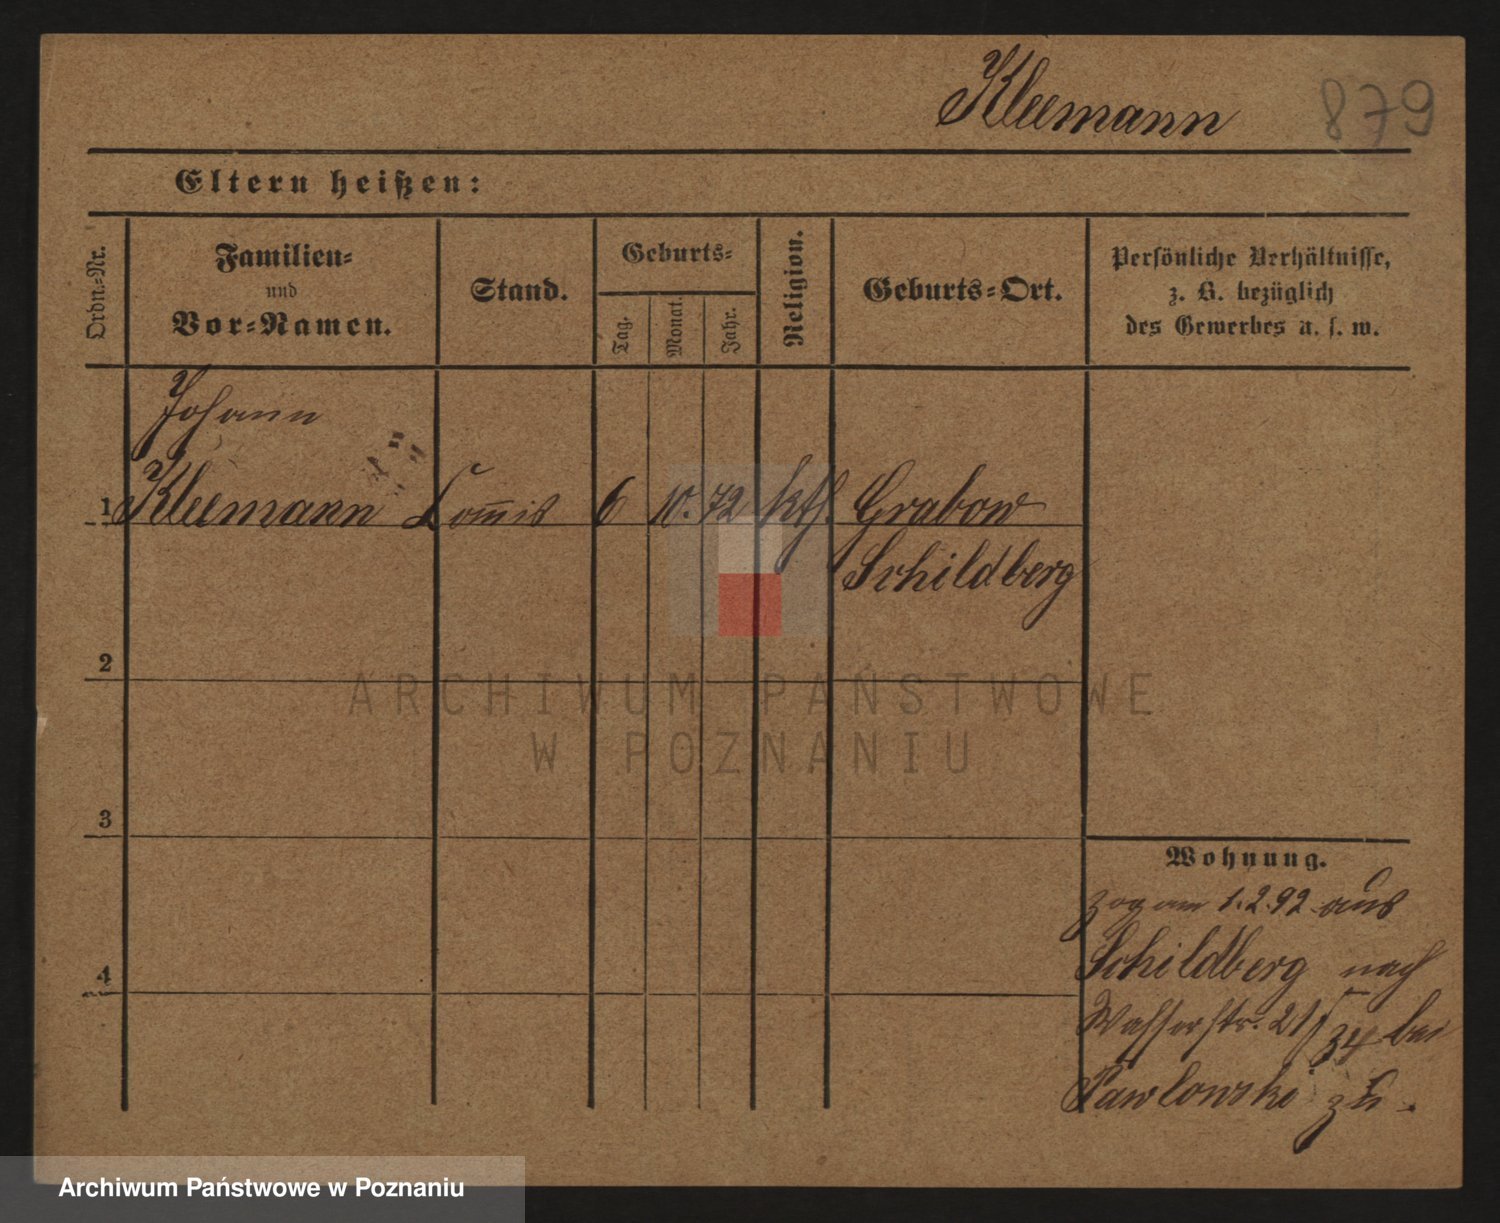 Kleemann 879
Eltern heißen:
Ordn.-Nr.
Familien-
und
Vor-Namen.
Stand.
Geburts-
Tag.
Monat.
Jahr.
Religion.
Geburts-Ort.
Persönliche Verhältnisse,
z. B. bezüglich
des Gewerbes u. s. w.
Johann
1 Kleemann Com̅is 6 10. 72 kth. Grabow
Schildberg
2
3
4
Wohnung.
zog am 1.2.92 aus
Schildberg nach
Wasserstr. 21/24 bei
Pawlowski zu.
ARCHIWUM PAŃSTWOWE
W POZNANIU
Archiwum Państwowe w Poznaniu